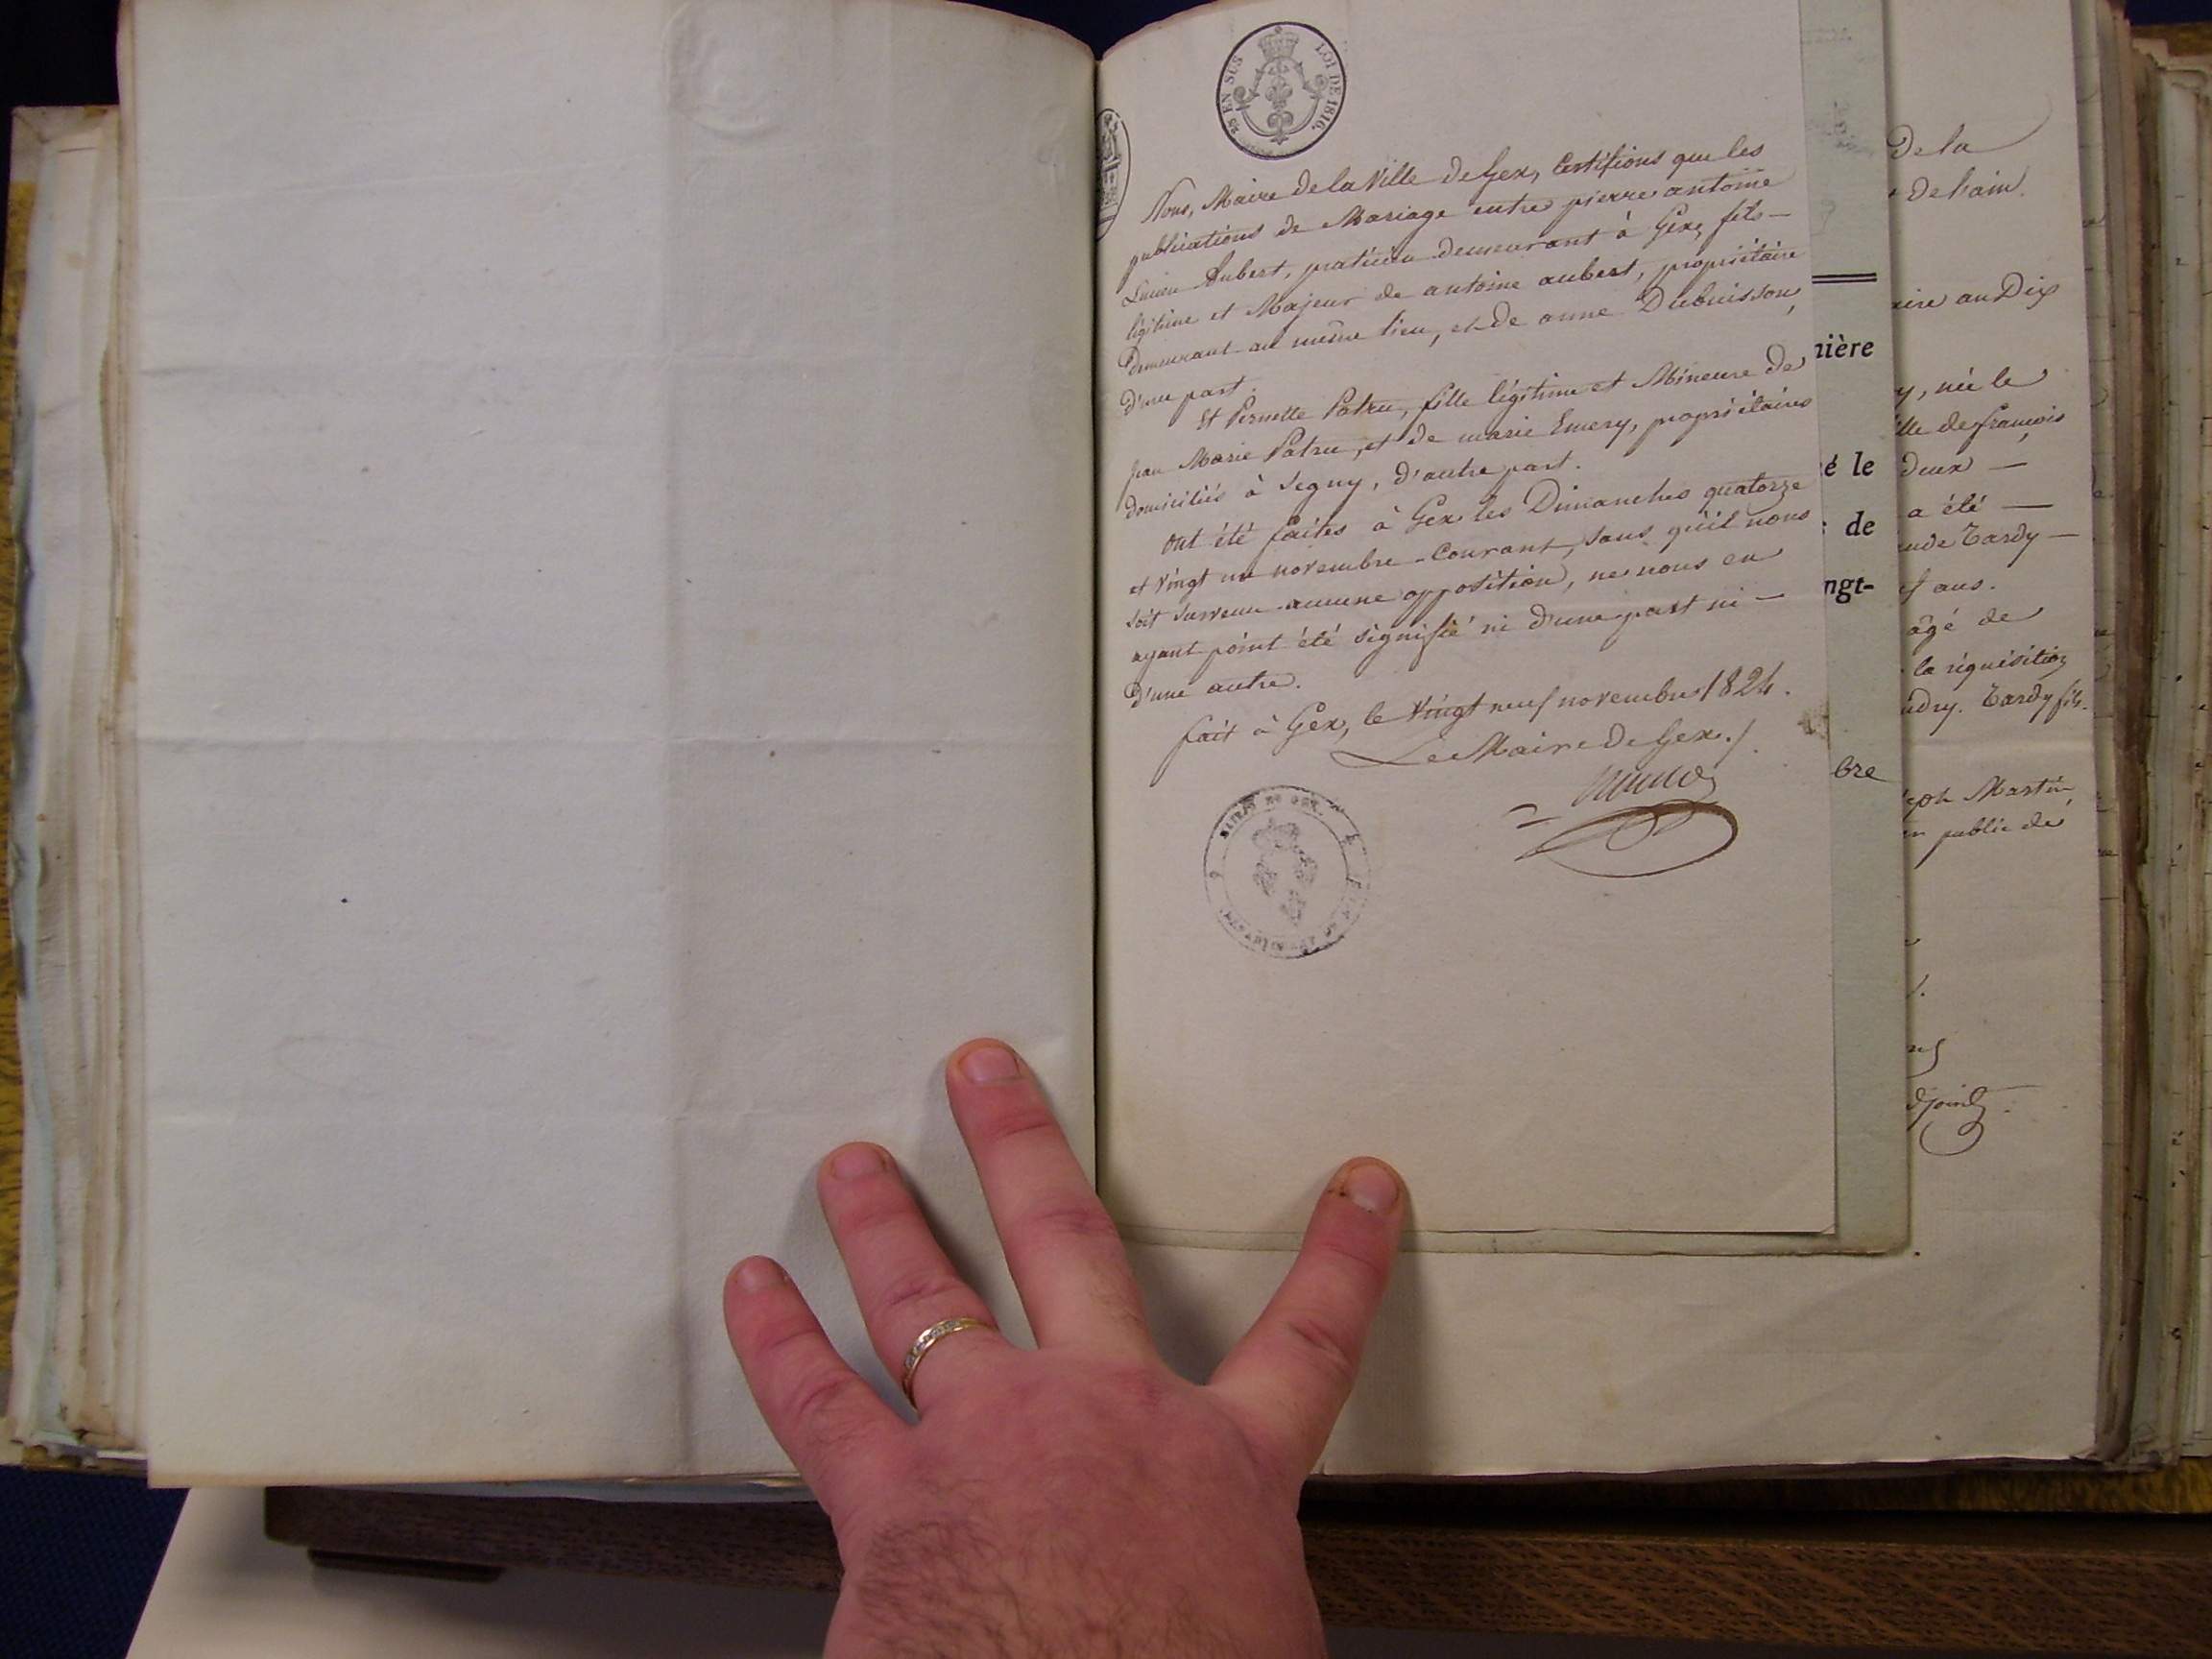 25 EN SUS LOI DE 1816.
Nous, Maire de la Ville de Gex, Certifions que les
publications de Mariage entre pierre antoine
Lucien Aubert, praticien demeurant à Gex, fils —
légitime et Majeur de antoine aubert, propriétaire
Demeurant au même lieu, et de anne Dubuisson,
d'une part.
Et Pernette Patru, fille légitime et Mineure de
jean Marie Patru, et de marie Emery, propriétaires
domiciliés à Segny, d'autre part.
Ont été faites à Gex les Dimanches quatorze
et vingt un novembre Courant, sans qu'il nous
soit survenu aucune opposition, ne nous en
ayant point été signifié ni d'une part ni —
d'une autre.
fait à Gex, le Vingt neuf novembre 1824.
Le Maire de Gex./.
MAIRIE DE GEX.
nière
é le
de
ngt-
bre
De la
De l'ain.
aire au Dix
y, née le
ille de françois
deux —
a été —
ude Tardy —
f ans.
âgé de
la réquisition
Tardy fils.
eph Martin,
public de
djoint